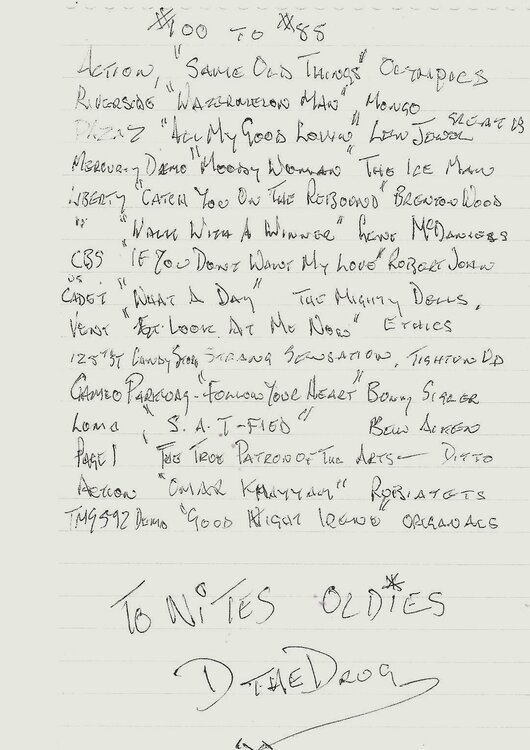 *100 TO *85
ACTION, "SAME OLD THINGS" OLYMPICS
RIVERSIDE "WATERMELON MAN" MONGO
"ALL MY GOOD LOVIN"
MERCURY DEMO "MOODY WOMAN" THE ICE MAN
LIBERTY "CATCH YOU ON THE REBOUND" BRENTON WOOD
" "WALK WITH A WINNER" GENE McDANIELS
CBS "IF YOU DON'T WANT MY LOVE" ROBERT JOHN
US CADET "WHAT A DAY" THE MIGHTY DELLS.
VENT "LOOK AT ME NOW" ETHICS
125TH ST CANDY STORE STRANG SENSATION, TIGHTEN UP
CAMEO PARKWAY - "FOLLOW YOUR HEART" BUNNY SIGLER
LOMA, "S.A.T-FIED"
PAGE 1 THE TRUE PATRON OF THE ARTS — DITTO
ACTION "OMAR KHAYYAM"
TM9592 DEMO "GOOD NIGHT IRENE" ORIGANALS
TO NITES OLDIES
D THE DROG